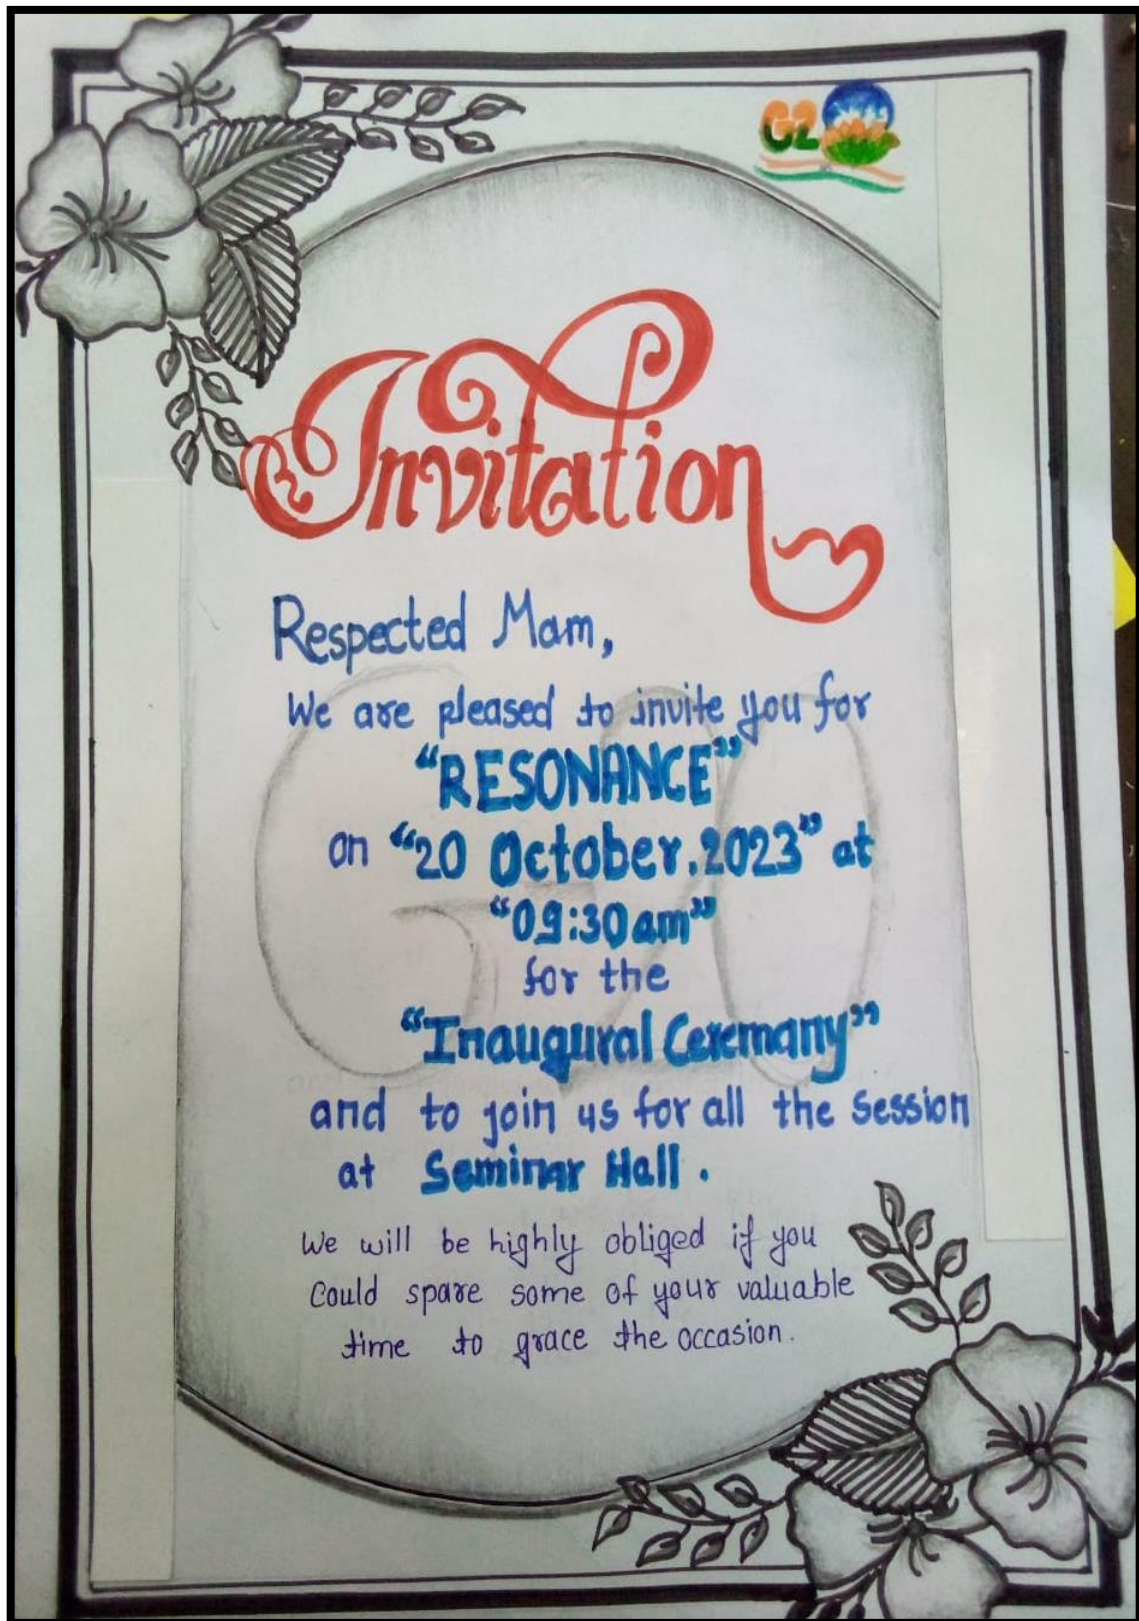 G20
Invitation
Respected Mam,
We are pleased to invite you for
“RESONANCE”
on “20 October, 2023” at
“09:30am”
for the
“Inaugural Ceremany”
and to join us for all the Session
at Seminar Hall.
We will be highly obliged if you
Could spare some of your valuable
time to grace the occasion.
G20